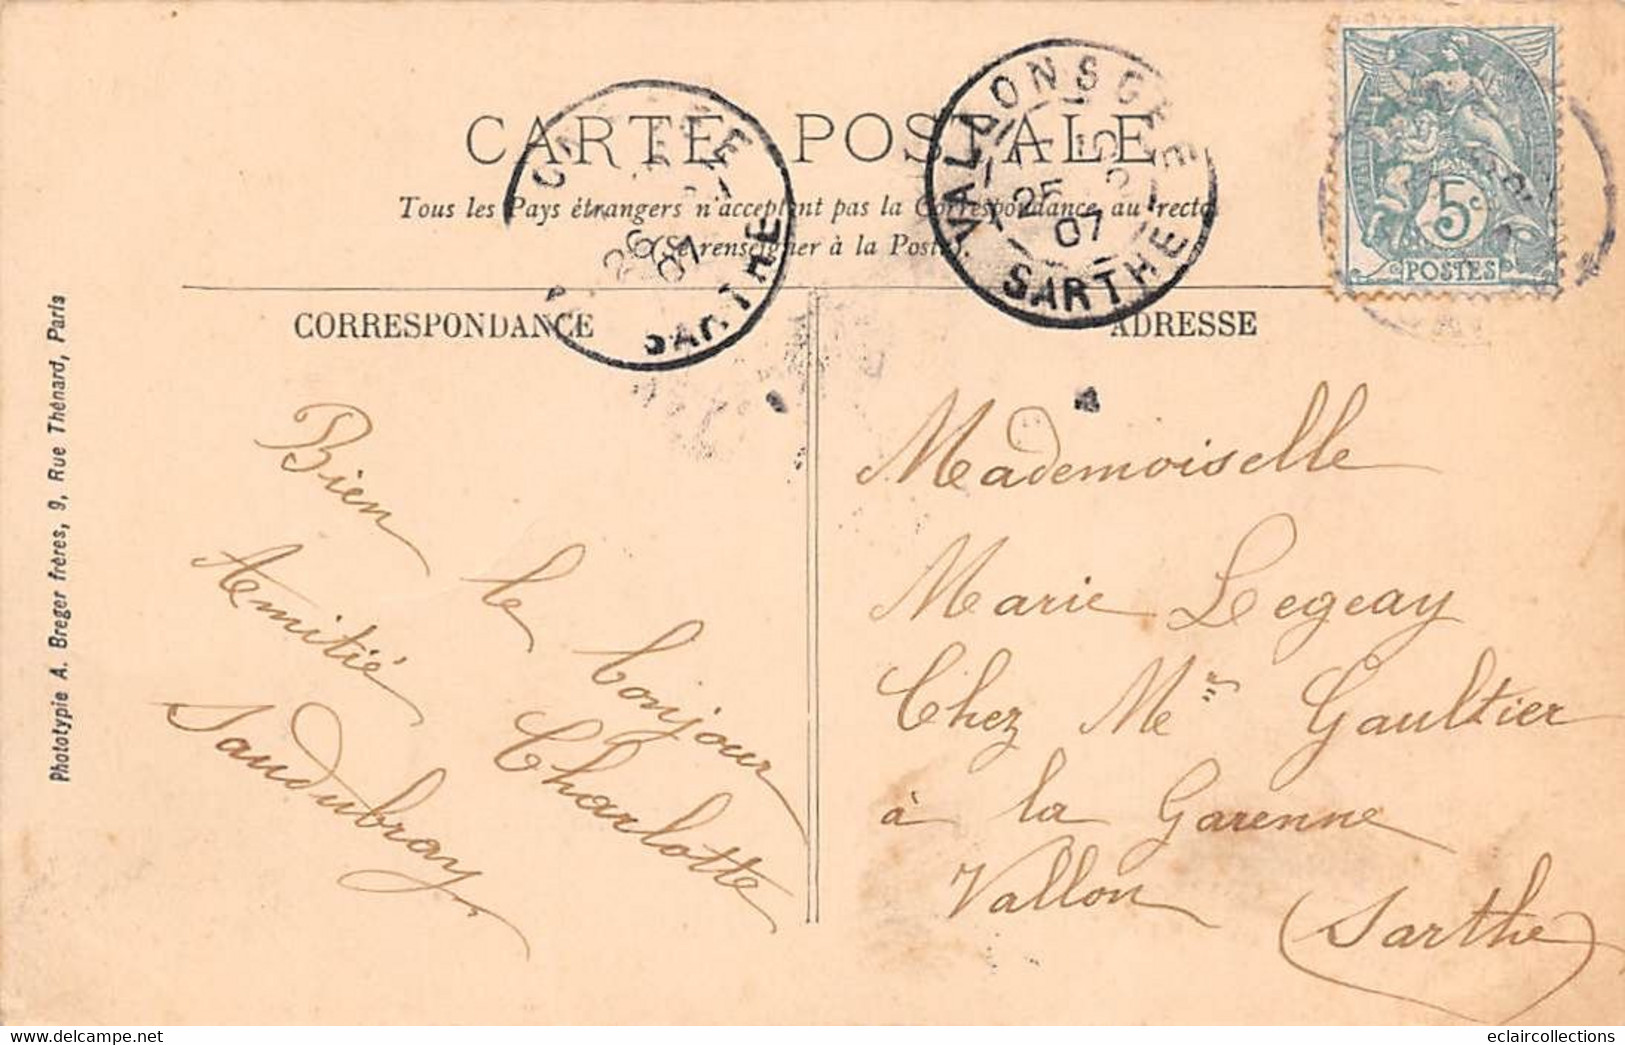 CARTE POSTALE
Tous les Pays étrangers n'acceptent pas la Correspondance au recto
(Se renseigner à la Poste).
VALLON SUR GEE
25
07
SARTHE
26
07
SARTHE
5c
POSTES
CORRESPONDANCE
ADRESSE
Phototypie A. Breger frères, 9, Rue Thénard, Paris
Bien le bonjour
Amitié Charlotte
Saudubray
Mademoiselle
Marie Legeay
Chez Melle Gaultier
à la Garenne
Vallon (Sarthe)
eclaircollections